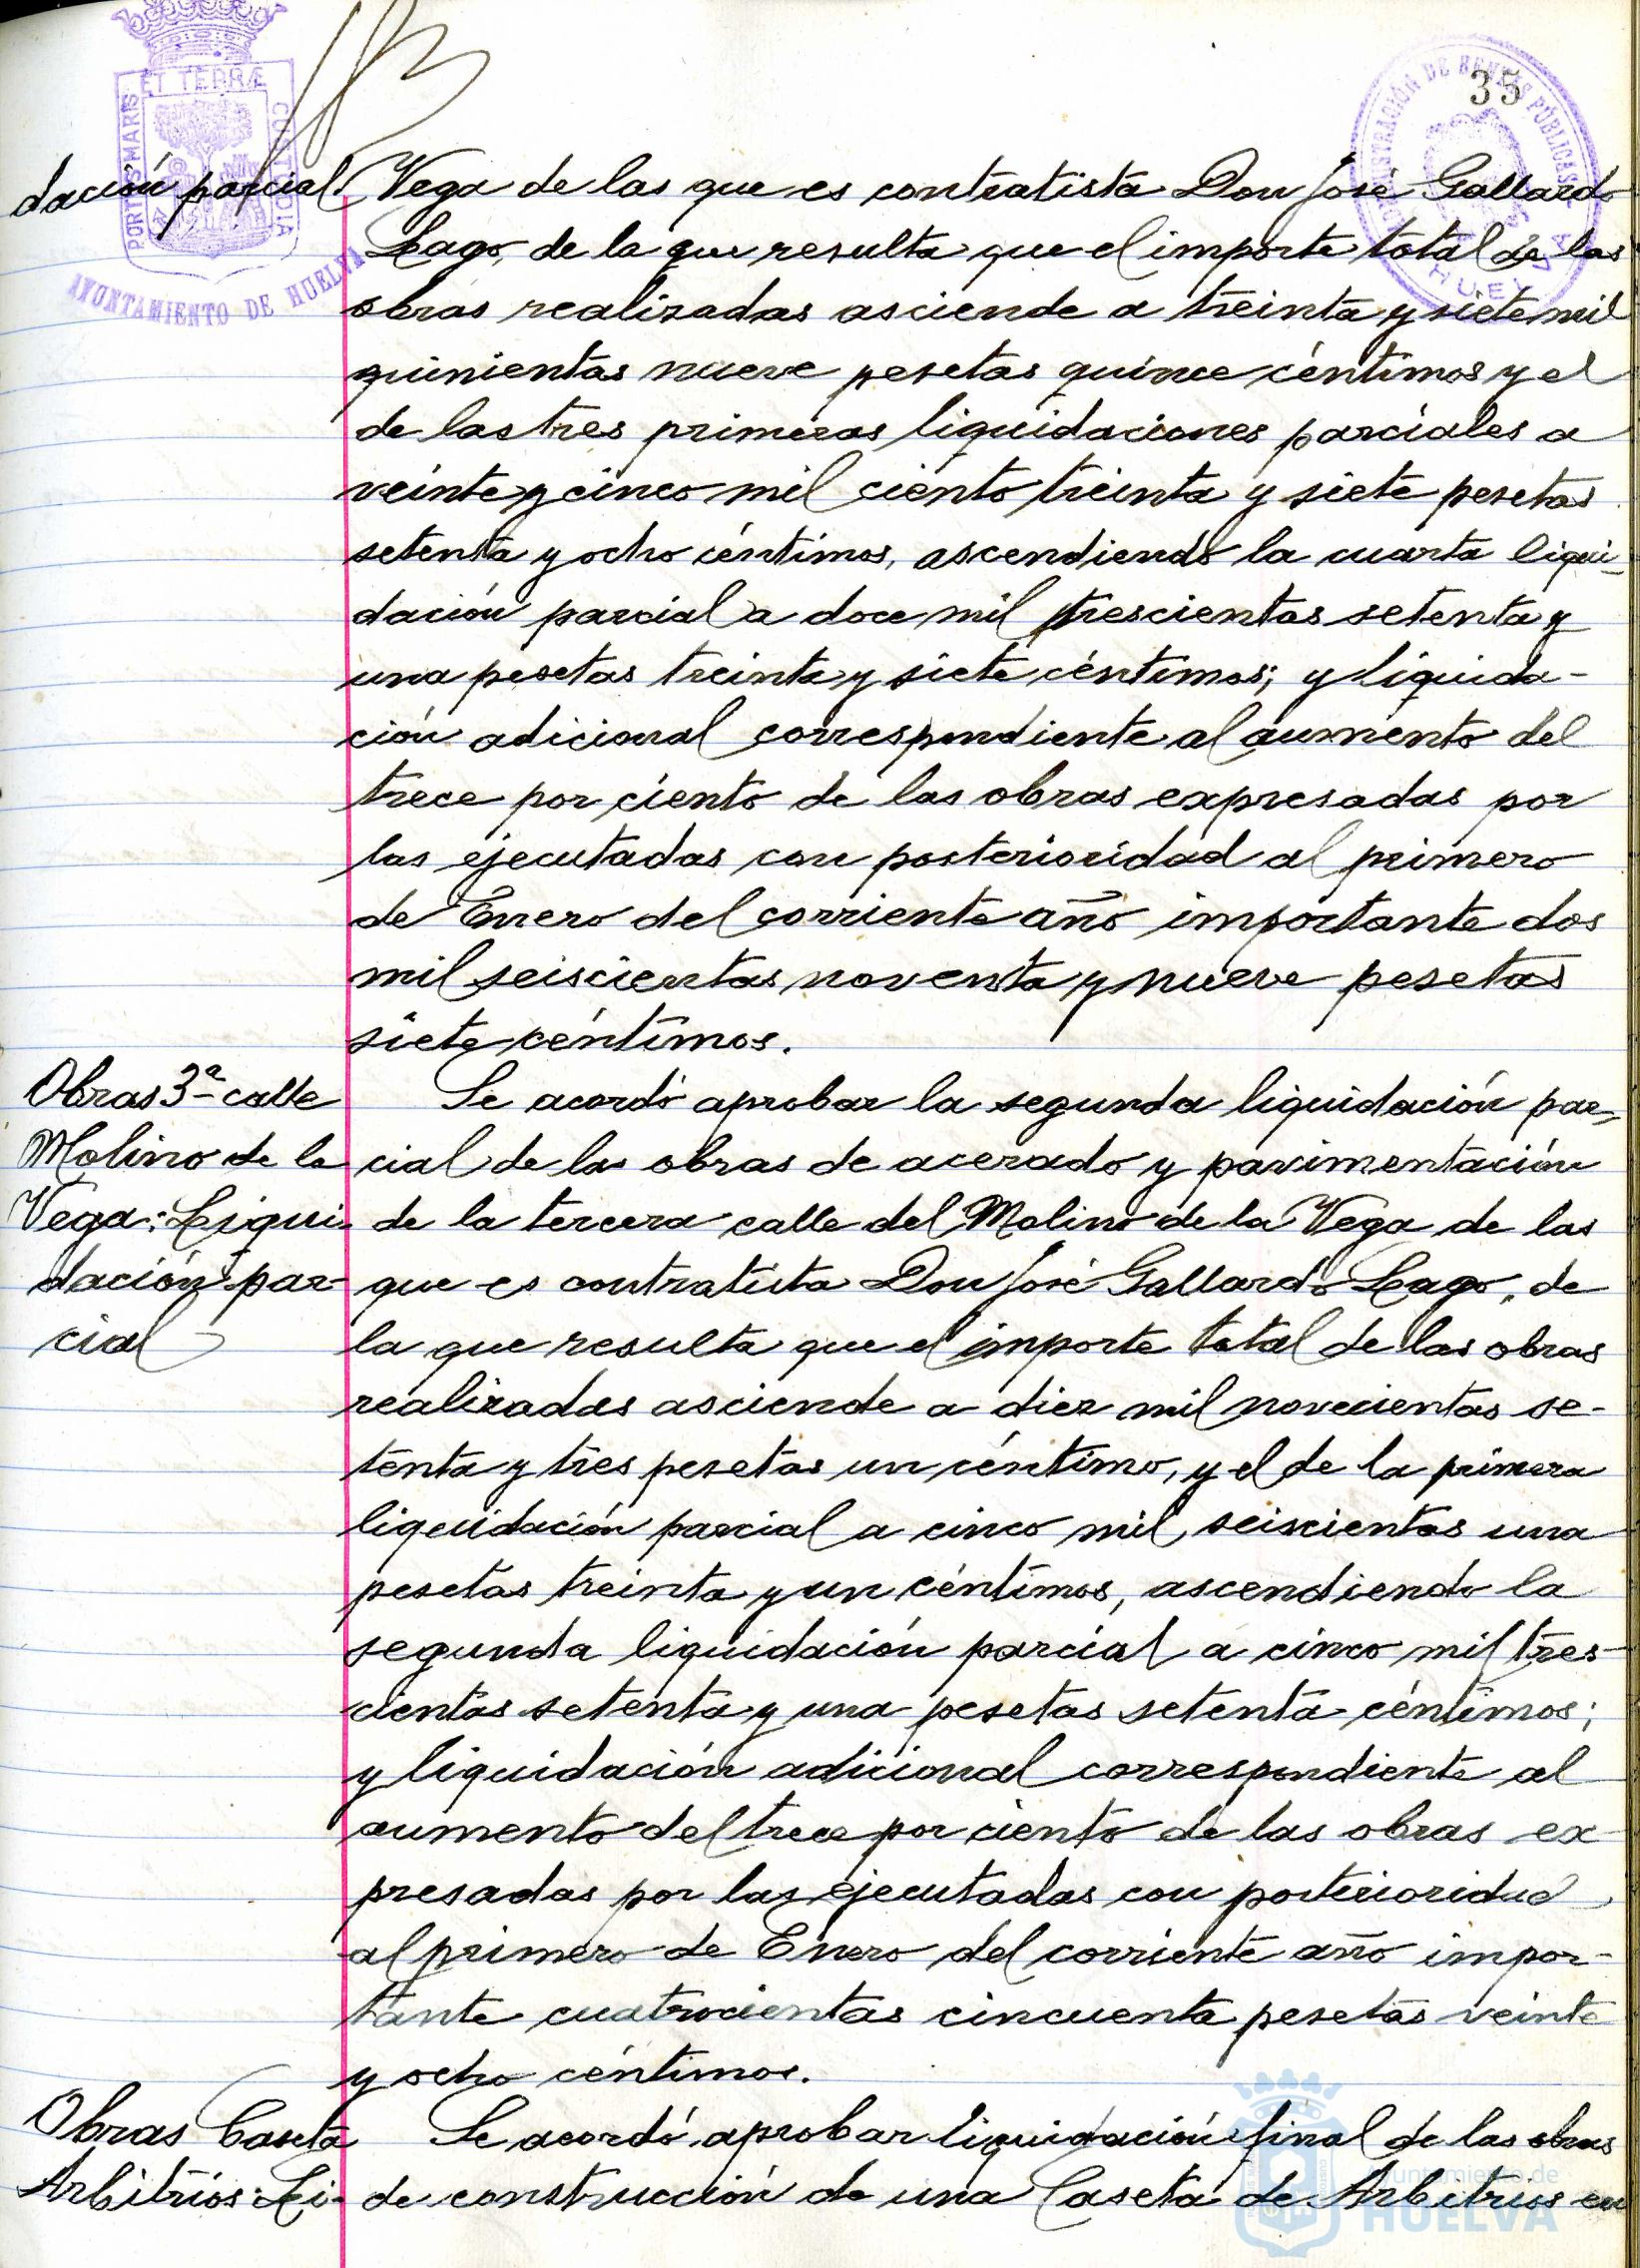 35
ET TERRÆ
PORTUS MARIS
CUSTODIA
AYUNTAMIENTO DE HUELVA
ADMINISTRACIÓN DE RENTAS PÚBLICAS
HUELVA
dación parcial.
Vega de las que es contratista Don José Gallardo
Lago, de la que resulta que el importe total de las
obras realizadas asciende a treinta y siete mil
quinientas nueve pesetas quince céntimos y el
de las tres primeras liquidaciones parciales a
veinte y cinco mil ciento treinta y siete pesetas
setenta y ocho céntimos, ascendiendo la cuarta liqui-
dación parcial a doce mil trescientas setenta y
una pesetas treinta y siete céntimos; y liquida-
ción adicional correspondiente al aumento del
trece por ciento de las obras expresadas por
las ejecutadas con posterioridad al primero
de Enero del corriente año importante dos
mil seiscientas noventa y nueve pesetas
siete céntimos.
Obras 3ª calle
Molino de la
Vega: Liqui-
dación par-
cial
Se acordó aprobar la segunda liquidación par-
cial de las obras de acerado y pavimentación
de la tercera calle del Molino de la Vega de las
que es contratista Don José Gallardo Lago, de
la que resulta que el importe total de las obras
realizadas asciende a diez mil novecientas se-
tenta y tres pesetas un céntimo, y el de la primera
liquidación parcial a cinco mil seiscientas una
pesetas treinta y un céntimos, ascendiendo la
segunda liquidación parcial a cinco mil tres-
cientas setenta y una pesetas setenta céntimos;
y liquidación adicional correspondiente al
aumento del trece por ciento de las obras ex-
presadas por las ejecutadas con posterioridad
al primero de Enero del corriente año impor-
tante cuatrocientas cincuenta pesetas veinte
y ocho céntimos.
Obras Caseta
Arbitrios: Li-
Se acordó aprobar liquidación final de las obras
de construcción de una Caseta de Arbitrios en
Ayuntamiento de
HUELVA